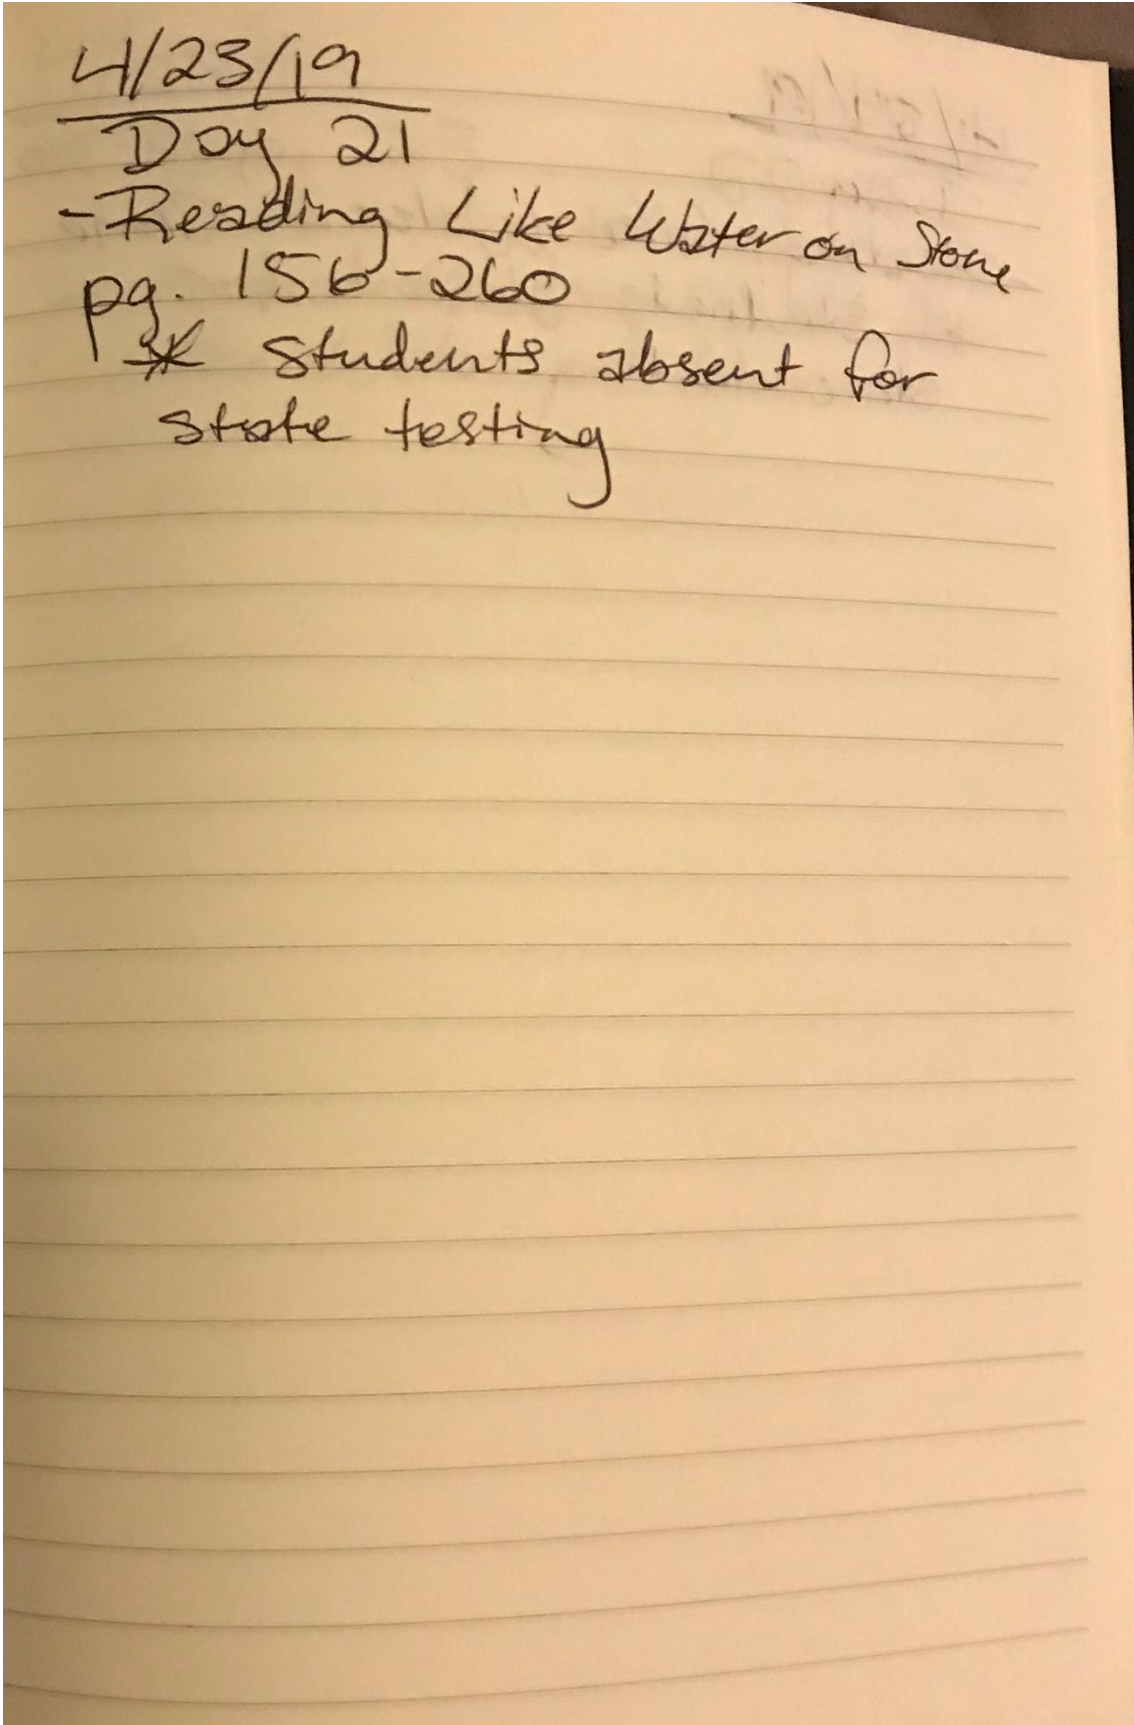 4/23/19
Day 21
- Reading Like Water on Stone
pg. 156-260
* Students absent for
state testing